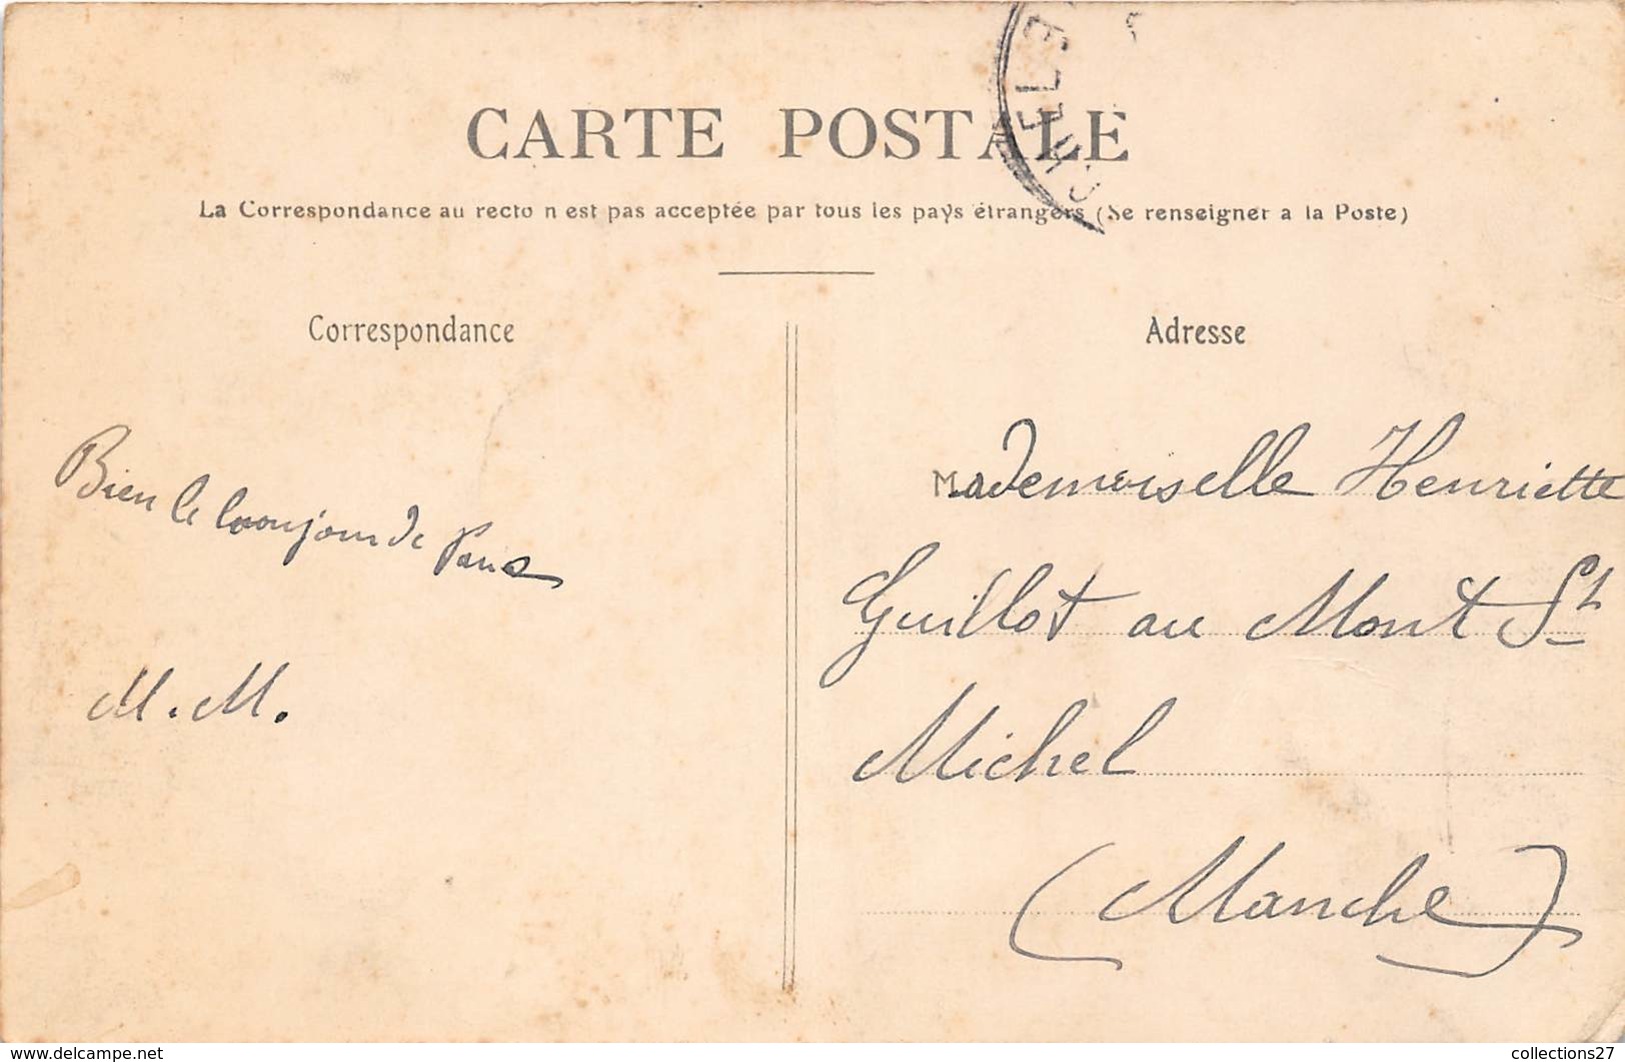 CARTE POSTALE
La Correspondance au recto n est pas acceptée par tous les pays étrangers (Se renseigner a la Poste)
Correspondance
Bien le bonjour de Paris
M. M.
Adresse
Mademoiselle Henriette
Guillot au Mont St
Michel
(Manche)
www.delcampe.net
collections27